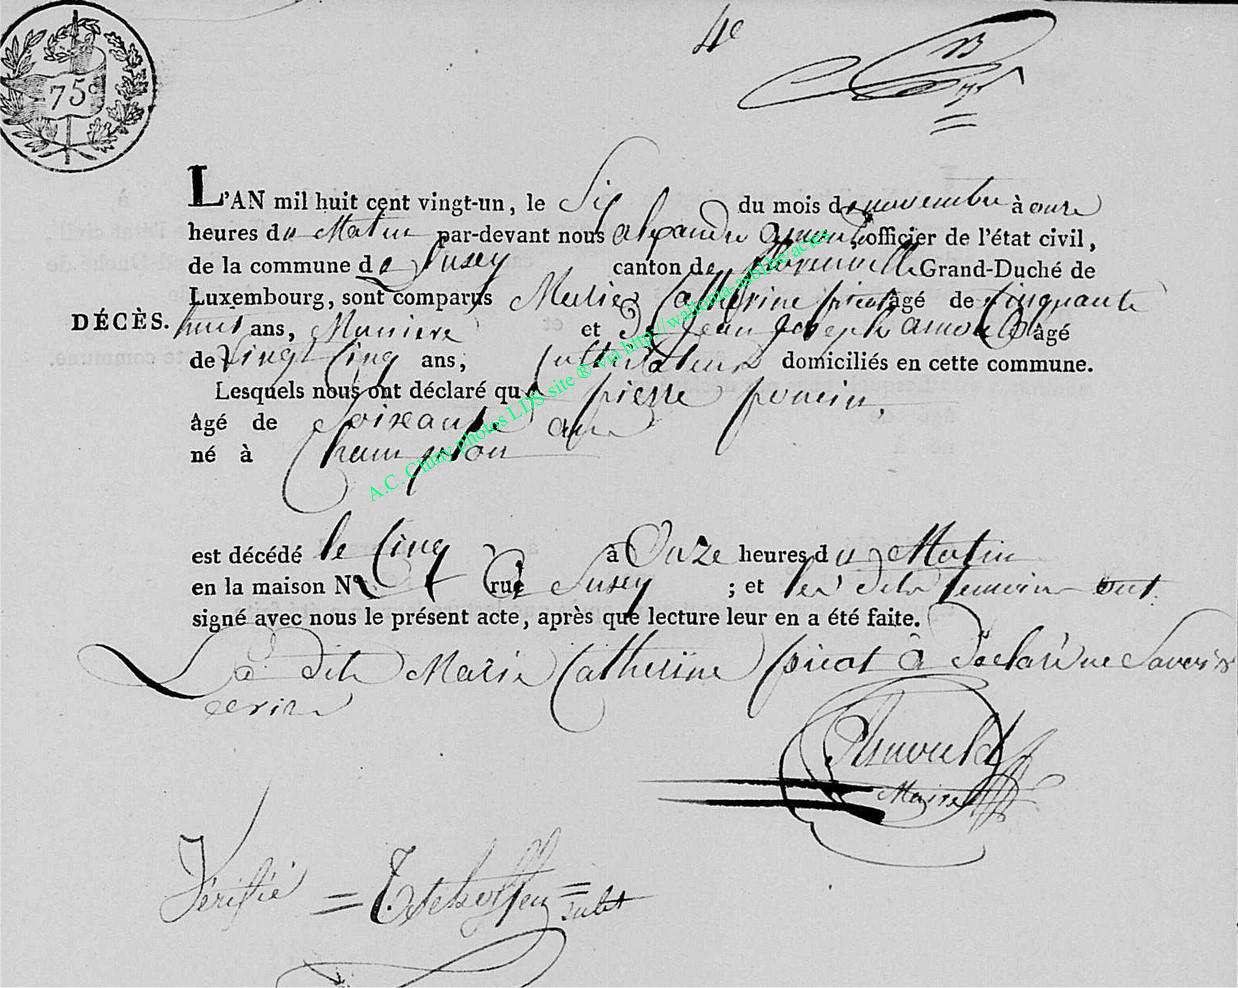 75c
4e
L'AN mil huit cent vingt-un, le Six du mois de novembre à onze
heures du Matin par-devant nous alexandre arnould officier de l'état civil,
de la commune de Susey canton de florenville Grand-Duché de
Luxembourg, sont comparus Marie Catherine picat âgé de Cinquante
DÉCÈS.
huit ans, et Jean Joseph arnould âgé
de Vingt Cinq ans, Cultivateurs domiciliés en cette commune.
Lesquels nous ont déclaré que pierre poncin,
âgé de Soixante an
né à Champlon
est décédé le Cinq à Onze heures du Matin
en la maison N° rue Susey ; et les dits temoin ont
signé avec nous le présent acte, après que lecture leur en a été faite.
La dite Marie Catherine picat à declaré ne Savoir
ecrire
Arnould
Maire
Vérifié
A.C. Chiny photos LDS site ® via http://wallonia-asbl.be/actes